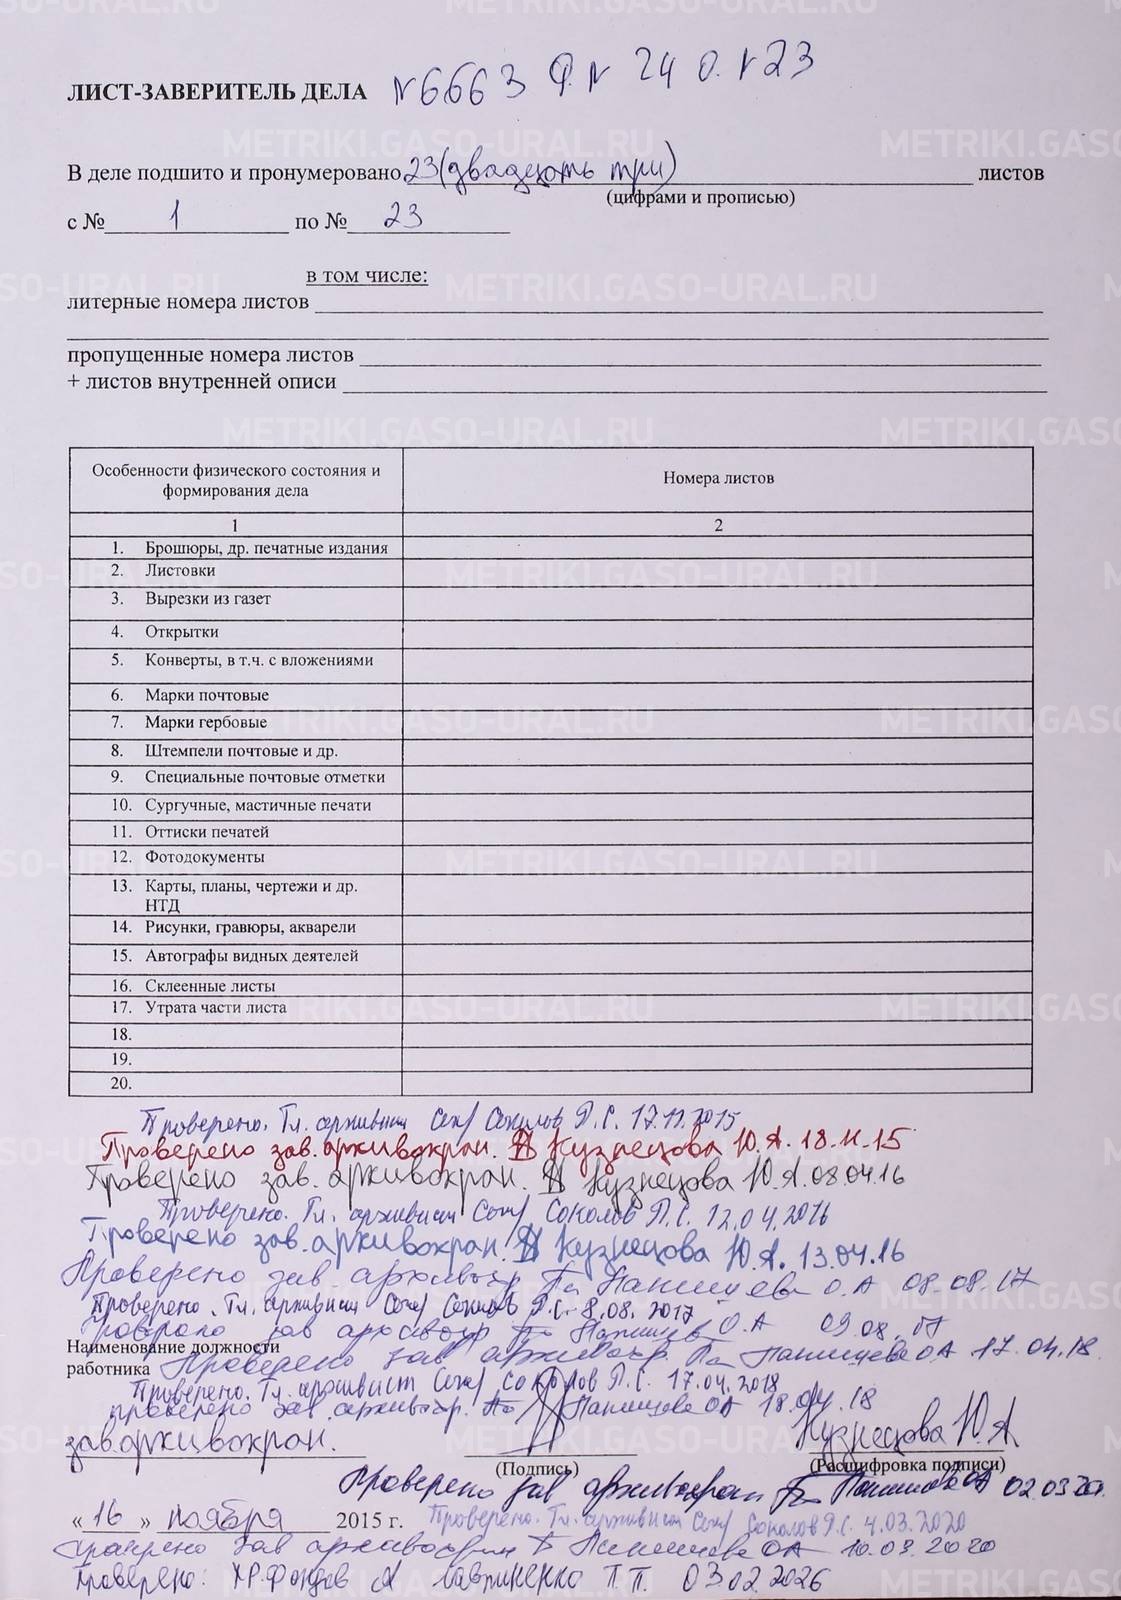 ЛИСТ-ЗАВЕРИТЕЛЬ ДЕЛА №6663 Ф.№ 24 О.№23
В деле подшито и пронумеровано 23 (двадцать три) листов
(цифрами и прописью)
с № 1 по № 23
в том числе:
литерные номера листов
пропущенные номера листов
+ листов внутренней описи
Особенности физического состояния и формирования дела Номера листов
1 2
1. Брошюры, др. печатные издания
2. Листовки
3. Вырезки из газет
4. Открытки
5. Конверты, в т.ч. с вложениями
6. Марки почтовые
7. Марки гербовые
8. Штемпели почтовые и др.
9. Специальные почтовые отметки
10. Сургучные, мастичные печати
11. Оттиски печатей
12. Фотодокументы
13. Карты, планы, чертежи и др.
НТД
14. Рисунки, гравюры, акварели
15. Автографы видных деятелей
16. Склеенные листы
17. Утрата части листа
18.
19.
20.
Проверено. Гл. архивист Соколов П.С. 17.11.2015
Проверено зав. архивохран. Кузнецова Ю.А. 18.11.15
Проверено зав. архивохран. Кузнецова Ю.А. 08.04.16
Проверено. Гл. архивист Соколов П.С. 12.04.2016
Проверено зав. архивохран. Кузнецова Ю.А. 13.04.16
Проверено зав архивохр О.А 08.08.17
Проверено. Гл. архивист Соколов П.С. 8.08.2017
Проверено зав архивохр О.А 09.08.17
Наименование должности
работника Проверено зав архивохр. ОА 17.04.18
Проверено. Гл. архивист Соколов П.С. 17.04.2018
проверено зав. архивохр. ОА 18.04.18
зав.архивохран. Кузнецова Ю.А
(Подпись) (Расшифровка подписи)
Проверено зав архивохран ОА 02.03.20.
«16» ноября 2015 г. Проверено. Гл. архивист Соколов П.С. 4.03.2020
Проверено зав архивохран ОА 10.03.2020
Проверено: хр.фондов Лавриненко П.П. 03.02.2026
METRIKI.GASO-URAL.RU